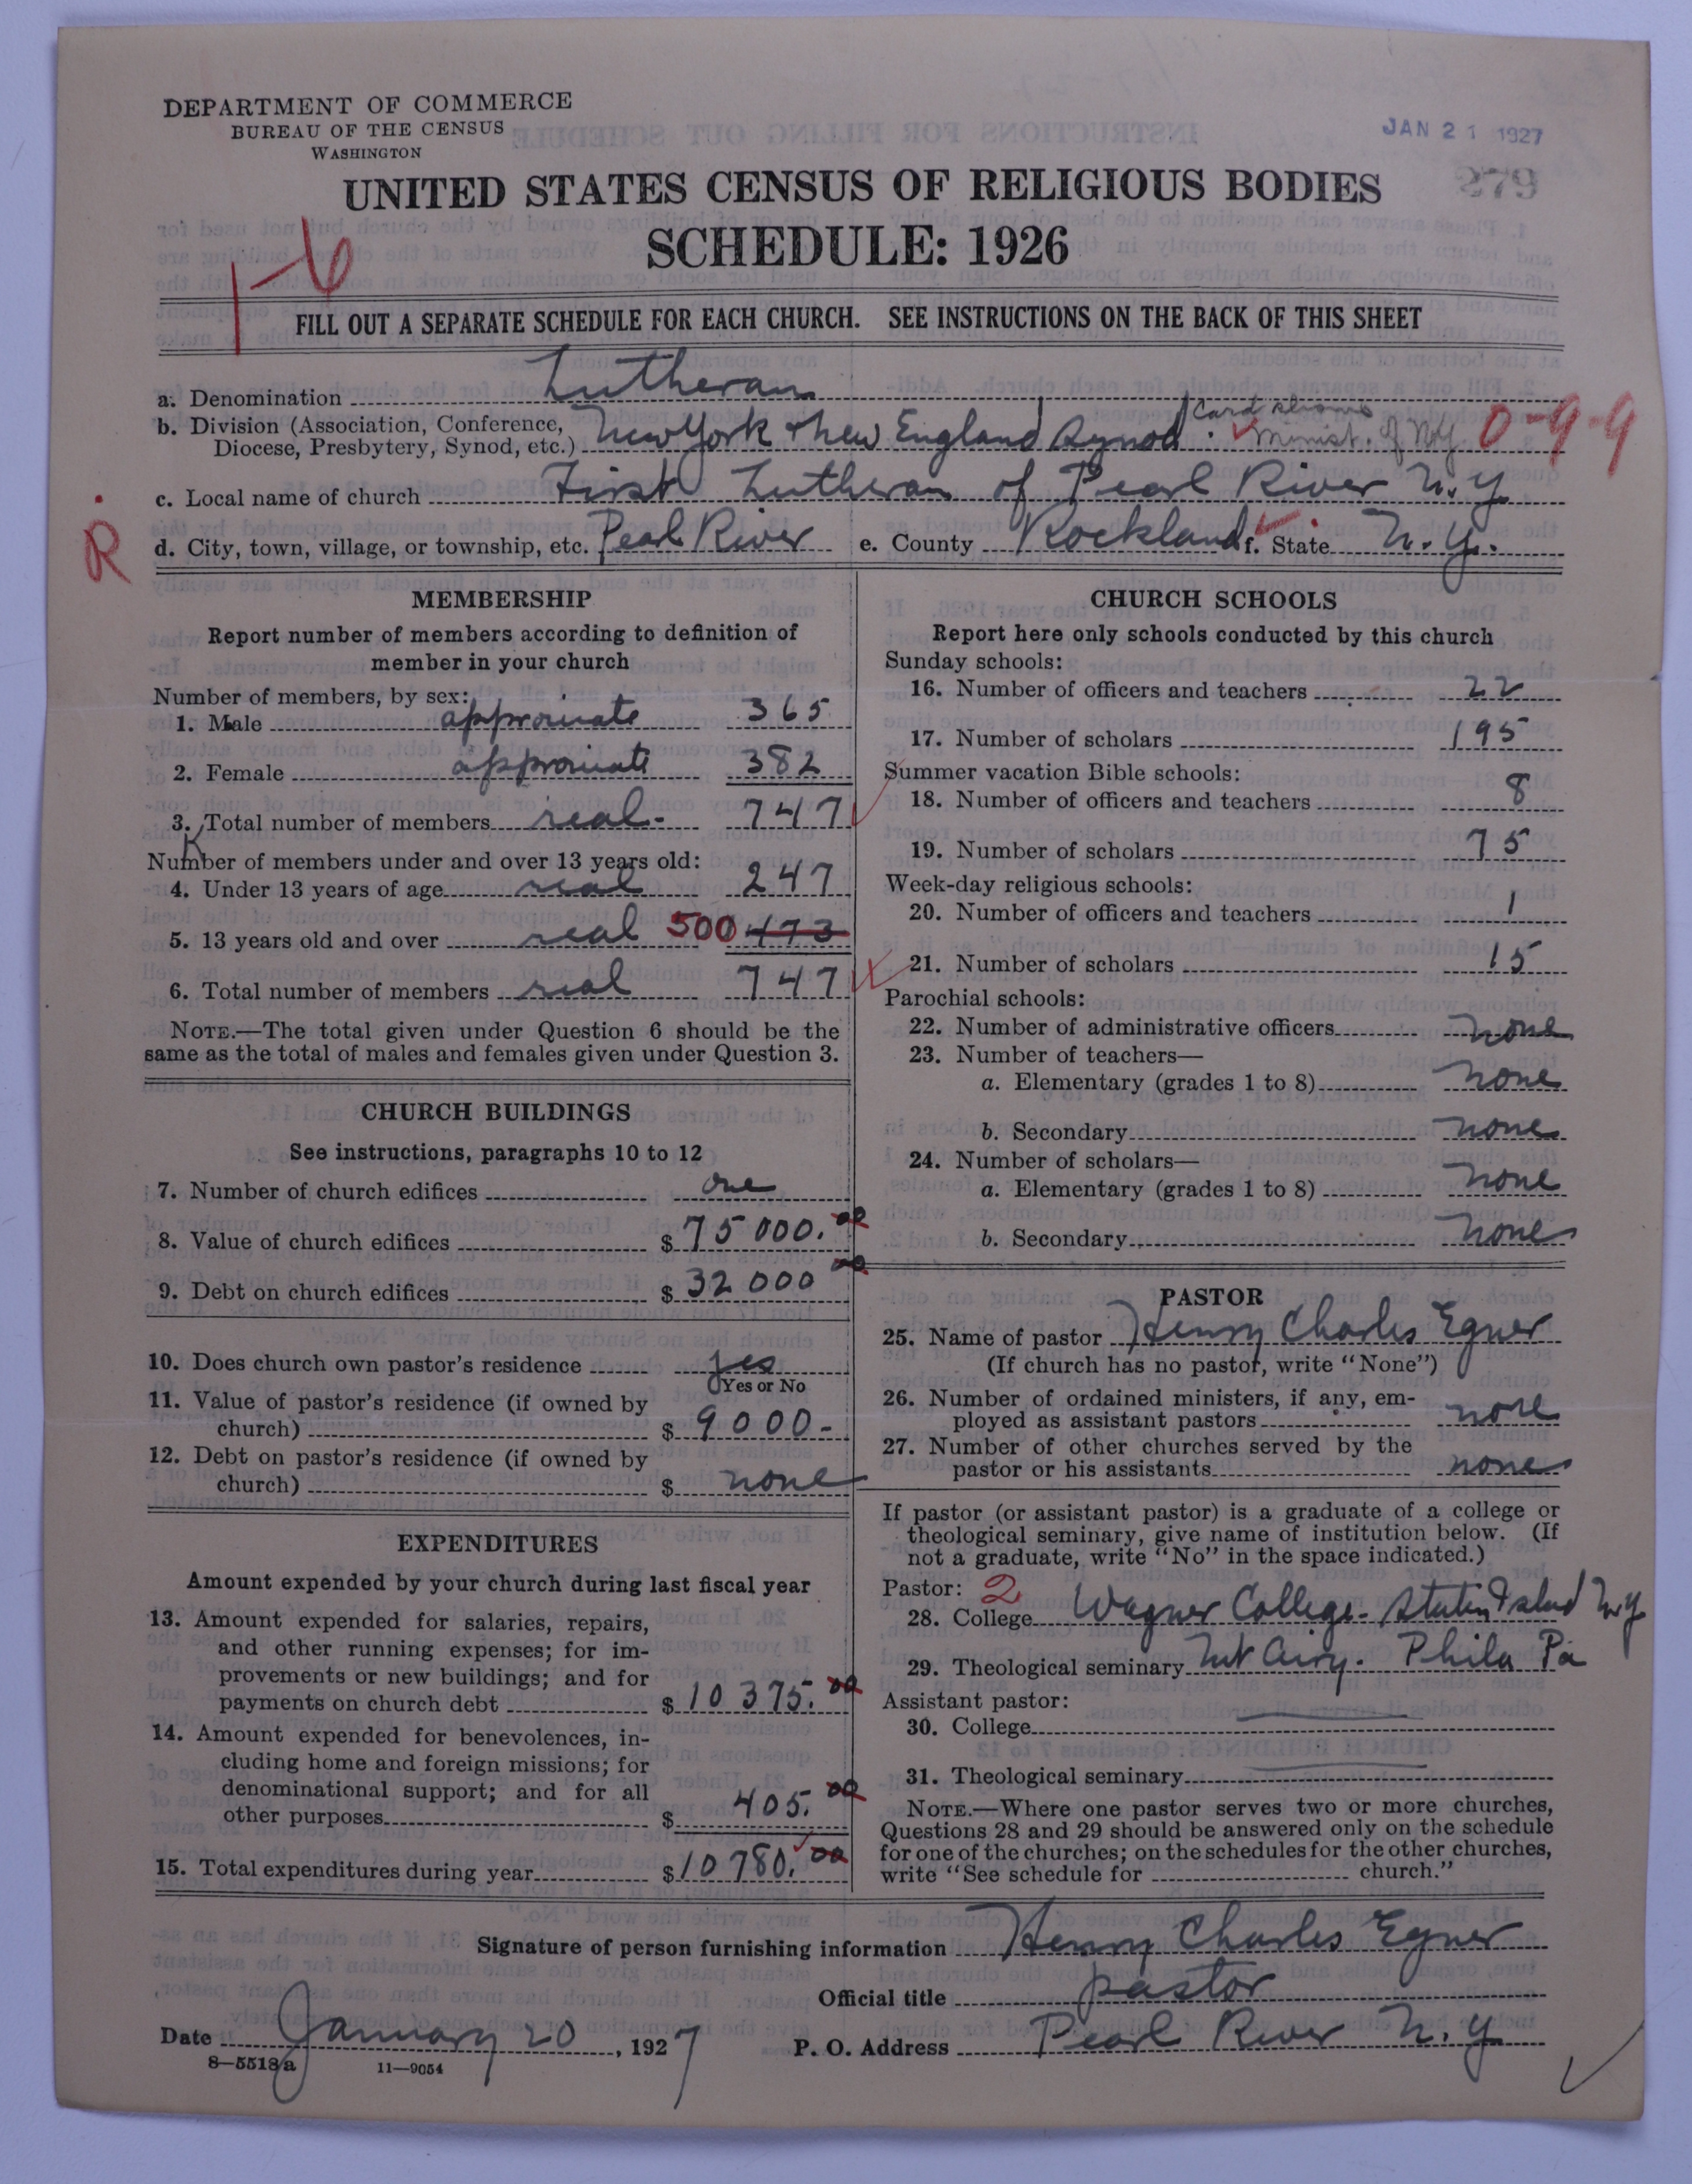 DEPARTMENT OF COMMERCE
BUREAU OF THE CENSUS
WASHINGTON
JAN 21 1927
279
UNITED STATES CENSUS OF RELIGIOUS BODIES
SCHEDULE: 1926
1-6
FILL OUT A SEPARATE SCHEDULE FOR EACH CHURCH. SEE INSTRUCTIONS ON THE BACK OF THIS SHEET
a. Denomination Lutheran
b. Division (Association, Conference, Diocese, Presbytery, Synod, etc.) New York & New England Synod. Card shows Minist. of N.Y. 0-9-9
c. Local name of church First Lutheran of Pearl River N.Y.
R
d. City, town, village, or township, etc. Pearl River e. County Rockland f. State N.Y.
MEMBERSHIP
Report number of members according to definition of
member in your church
Number of members, by sex:
1. Male approximate 365
2. Female approximate 382
3. Total number of members real- 747
Number of members under and over 13 years old:
4. Under 13 years of age real 247
5. 13 years old and over real 500 473
6. Total number of members real 747
NOTE.—The total given under Question 6 should be the
same as the total of males and females given under Question 3.
CHURCH BUILDINGS
See instructions, paragraphs 10 to 12
7. Number of church edifices one
8. Value of church edifices $ 75 000.00
9. Debt on church edifices $ 32 000 00
10. Does church own pastor's residence yes
Yes or No
11. Value of pastor's residence (if owned by
church) $ 9000-
12. Debt on pastor's residence (if owned by
church) $ none
EXPENDITURES
Amount expended by your church during last fiscal year
13. Amount expended for salaries, repairs,
and other running expenses; for im-
provements or new buildings; and for
payments on church debt $ 10 375.00
14. Amount expended for benevolences, in-
cluding home and foreign missions; for
denominational support; and for all
other purposes $ 405.00
15. Total expenditures during year $ 10 780.00
CHURCH SCHOOLS
Report here only schools conducted by this church
Sunday schools:
16. Number of officers and teachers 22
17. Number of scholars 195
Summer vacation Bible schools:
18. Number of officers and teachers 8
19. Number of scholars 75
Week-day religious schools:
20. Number of officers and teachers 1
21. Number of scholars 15
Parochial schools:
22. Number of administrative officers none
23. Number of teachers—
a. Elementary (grades 1 to 8) none
b. Secondary none
24. Number of scholars—
a. Elementary (grades 1 to 8) none
b. Secondary none
PASTOR
25. Name of pastor Henry Charles Egner
(If church has no pastor, write "None")
26. Number of ordained ministers, if any, em-
ployed as assistant pastors none
27. Number of other churches served by the
pastor or his assistants none
If pastor (or assistant pastor) is a graduate of a college or
theological seminary, give name of institution below. (If
not a graduate, write "No" in the space indicated.)
Pastor: 2
28. College Wagner College. Staten Island N.Y
29. Theological seminary Mt Airy. Phila Pa
Assistant pastor:
30. College
31. Theological seminary
NOTE.—Where one pastor serves two or more churches,
Questions 28 and 29 should be answered only on the schedule
for one of the churches; on the schedules for the other churches,
write "See schedule for church."
Signature of person furnishing information Henry Charles Egner
Official title pastor
Date January 20, 1927 P. O. Address Pearl River N.Y.
8—5518a 11—9054